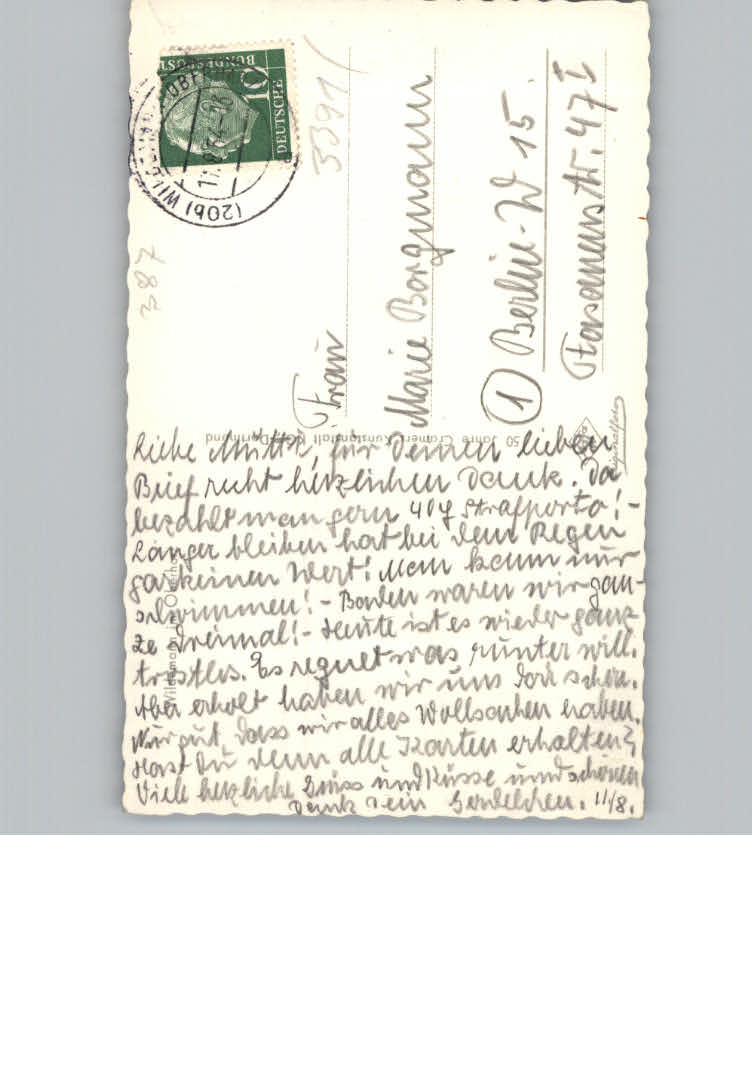 DEUTSCHE
BUNDESPOST
10
(20b) WILDEMANN (OBERHARZ)
3391
387
Frau
Marie Borgmann
(1) Berlin-W 15.
Fasanenstr. 47 I
50 Jahre Cramers Kunstanstalt KG., Dortmund
Wildemann im Oberharz
Liebe Mutti, für Deinen lieben
Brief recht herzlichen Dank. Da
bezahlt man gern 40 Strafporto! -
Länger bleiben hat bei dem Regen
gar keinen Wert! Man kann nur
schwimmen! - Baden waren wir gan-
ze dreimal! - Heute ist es wieder ganz
trostlos. Es regnet was runter will.
Aber erholt haben wir uns doch schon.
Nur gut, dass wir alles Wollsachen haben.
Hast Du denn alle Karten erhalten?
Viele herzliche Grüsse und Küsse und schönen
Dank Dein 11/8.